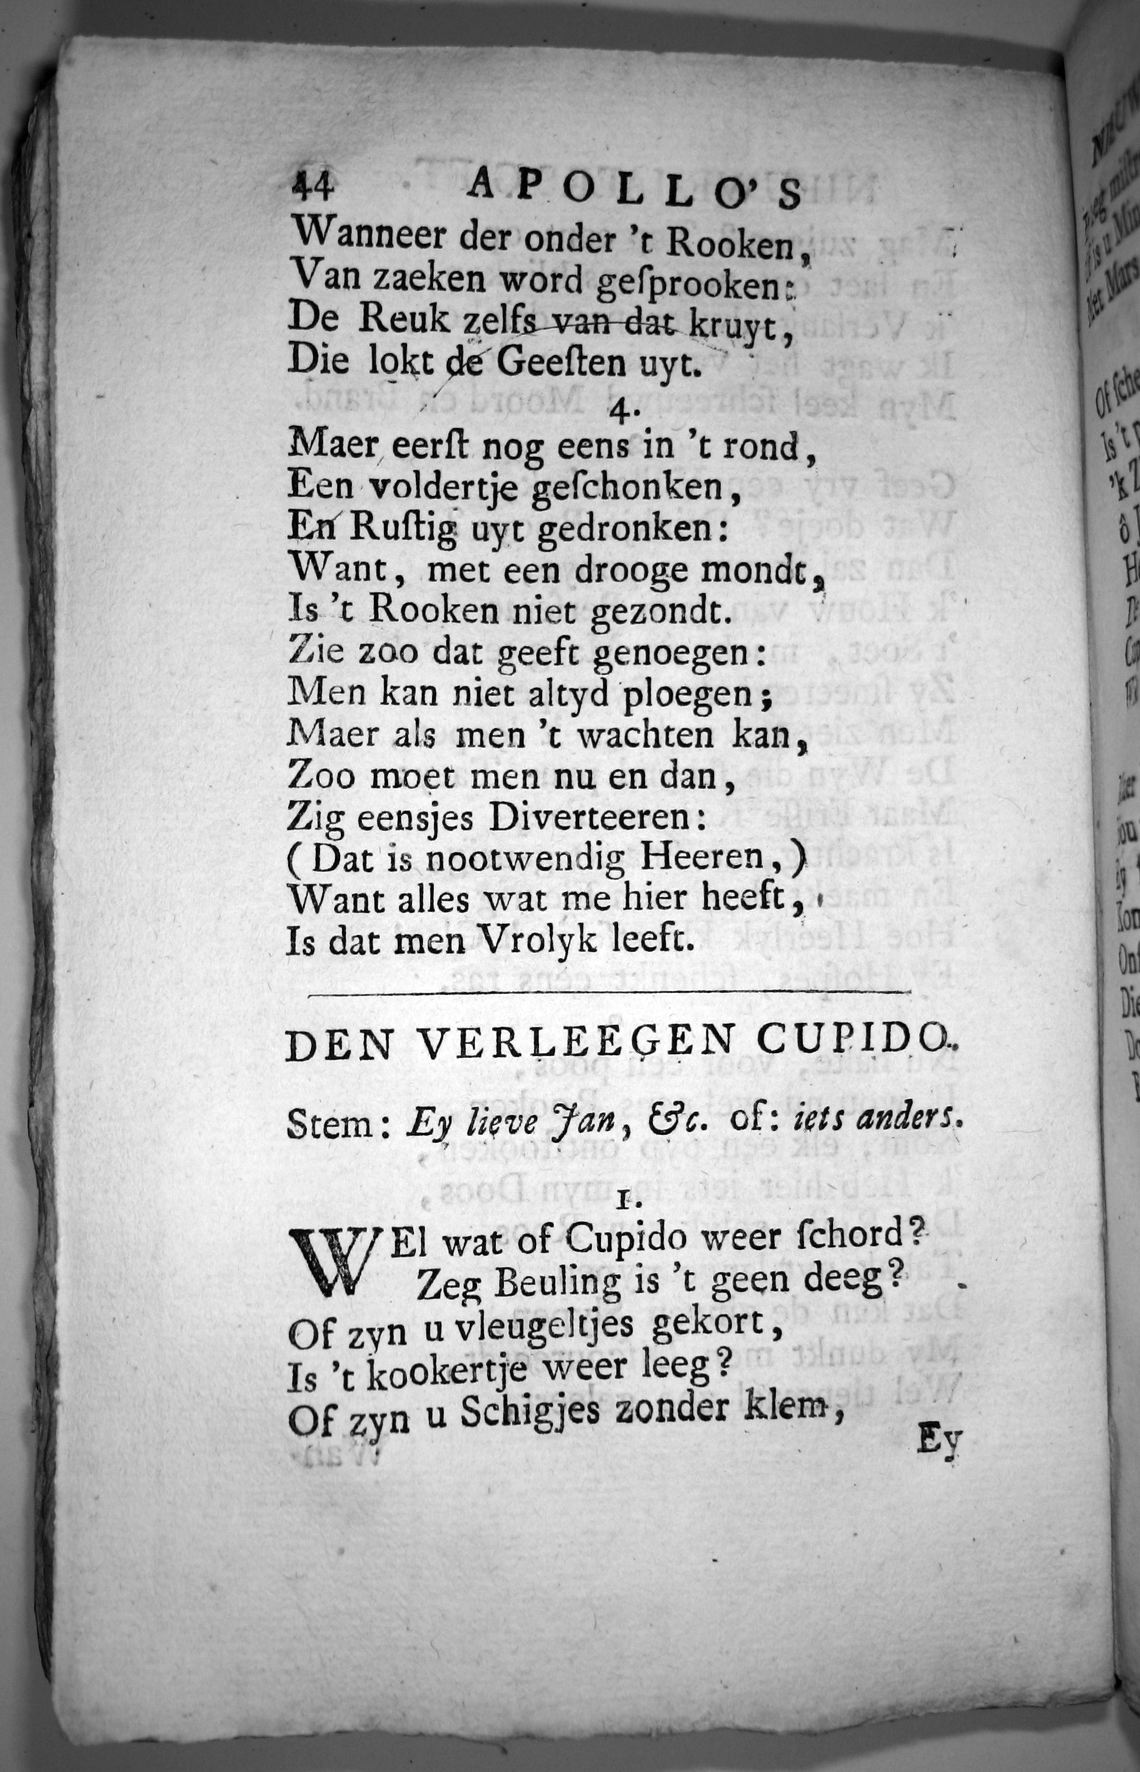 44 APOLLO'S
Wanneer der onder 't Rooken,
Van zaeken word geſprooken:
De Reuk zelfs van dat kruyt,
Die lokt de Geeſten uyt.
4.
Maer eerſt nog eens in 't rond,
Een voldertje geſchonken,
En Ruſtig uyt gedronken:
Want, met een drooge mondt,
Is 't Rooken niet gezondt.
Zie zoo dat geeft genoegen:
Men kan niet altyd ploegen;
Maer als men 't wachten kan,
Zoo moet men nu en dan,
Zig eensjes Diverteeren:
(Dat is nootwendig Heeren,)
Want alles wat me hier heeft,
Is dat men Vrolyk leeft.
DEN VERLEEGEN CUPIDO.
Stem: Ey lieve Jan, &c. of: iets anders.
1.
WEl wat of Cupido weer ſchord?
Zeg Beuling is 't geen deeg?
Of zyn u vleugeltjes gekort,
Is 't kookertje weer leeg?
Of zyn u Schigjes zonder klem,
Ey